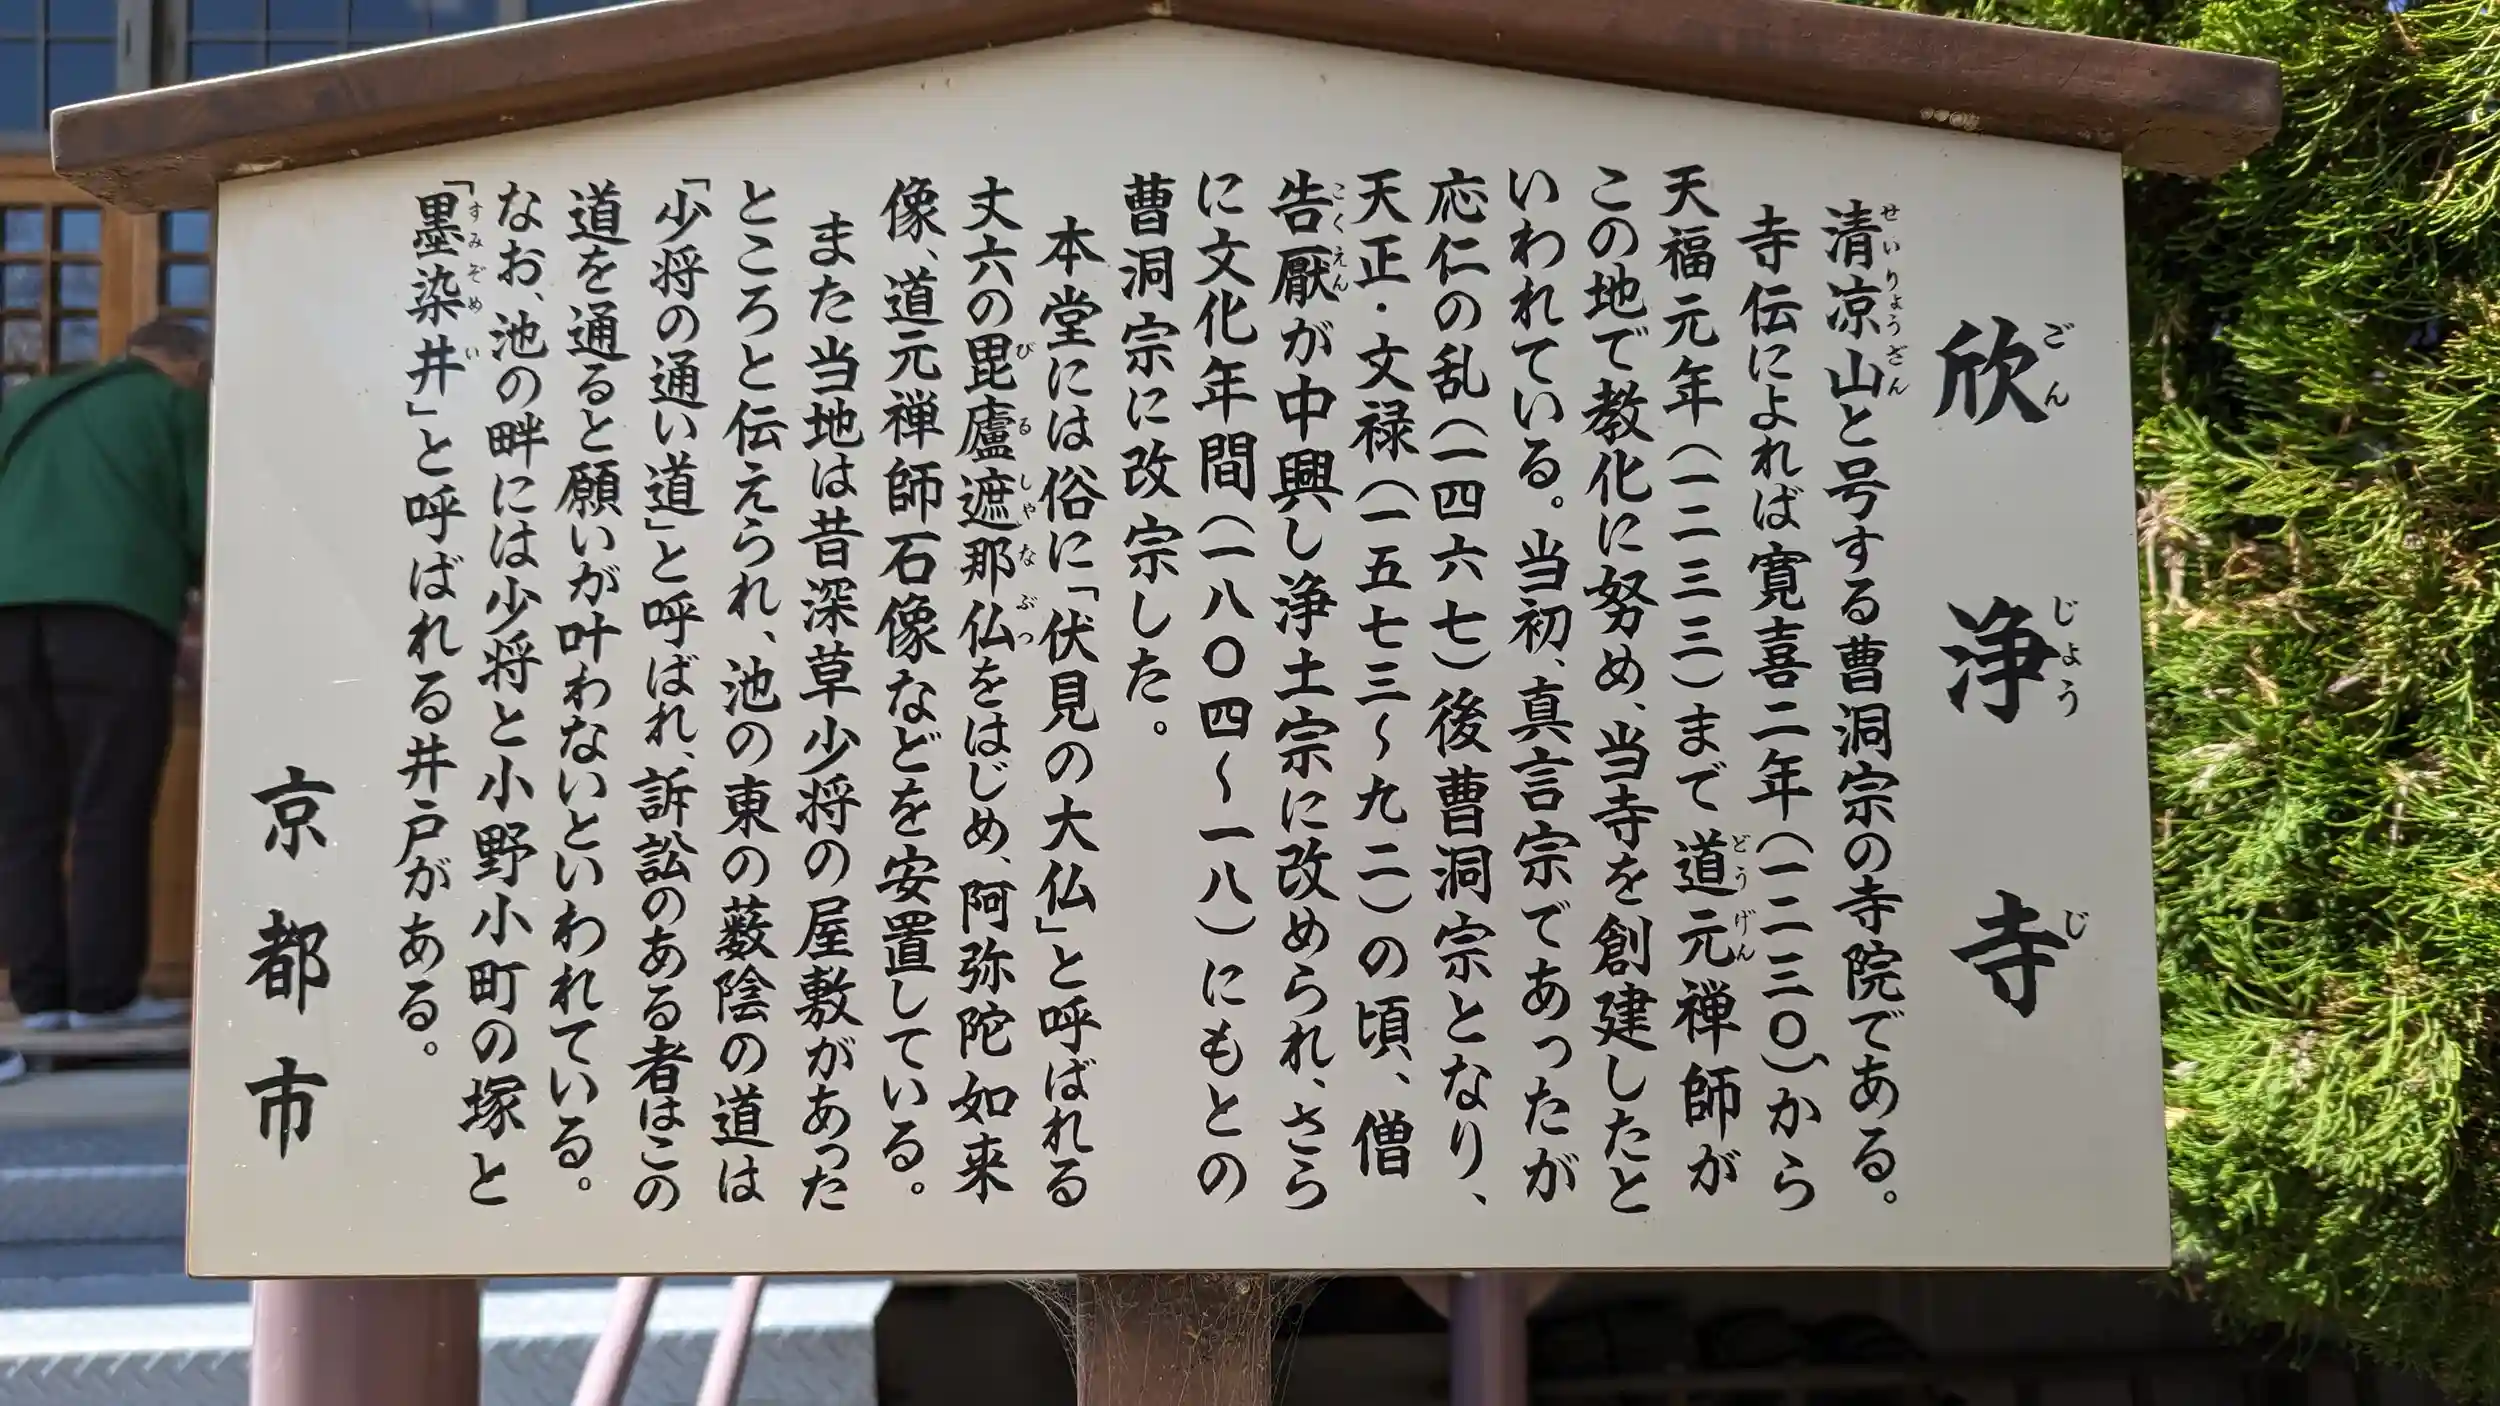 欣浄寺
ごんじょうじ
清涼山と号する曹洞宗の寺院である。
せいりょうざん
寺伝によれば寛喜二年（一二三〇）から
天福元年（一二三三）まで道元禅師が
どうげん
この地で教化に努め、当寺を創建したと
いわれている。当初、真言宗であったが
応仁の乱（一四六七）後曹洞宗となり、
天正・文禄（一五七三〜九二）の頃、僧
告厭が中興し浄土宗に改められ、さら
こくえん
に文化年間（一八〇四〜一八）にもとの
曹洞宗に改宗した。
本堂には俗に「伏見の大仏」と呼ばれる
丈六の毘盧遮那仏をはじめ、阿弥陀如来
びるしゃなぶつ
像、道元禅師石像などを安置している。
また当地は昔深草少将の屋敷があった
ところと伝えられ、池の東の薮陰の道は
「少将の通い道」と呼ばれ、訴訟のある者はこの
道を通ると願いが叶わないといわれている。
なお、池の畔には少将と小野小町の塚と
「墨染井」と呼ばれる井戸がある。
すみぞめい
京都市